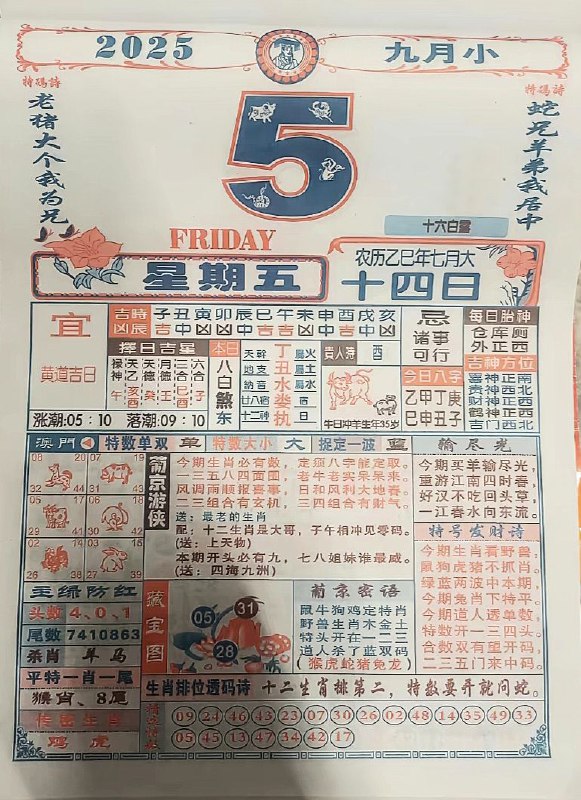 2025
九月小
特码詩
老猪大个我为兄
特码詩
蛇兄羊弟我居中
5
十六白露
FRIDAY
星期五
农历乙巳年七月大
十四日
宜
黄道吉日
吉時 子丑寅卯辰巳午未申酉戌亥
凶辰
忌
诸事可行
每日胎神
仓库厕
外正西
吉神方位
喜神正南
贵神西北
财神正西
鹤神正西
吉门西北
擇日吉星
本日
八白煞东
天幹
地支
纳音
廿八宿
十二神
丁丑水娄执
貴人祿 西
牛日冲羊生年35岁
今日八字
乙甲丁庚
巳申丑子
涨潮:05:10 落潮:09:10
澳門 特数单双 单 特数大小 大 捉定一波 蓝
08 20
07 19
05 17
06 18
29 41
30 42
02 14
03 15
26 38
27 39
葡京游侠
今期生肖必有数,定须八字能定取。
一三五八四面围,老牛老实呆呆来。
风调雨顺报喜事,日和风利大地春。
二三组合有玄机,三四组合有财气。
送:最老的生肖
配:十二生肖是大哥,子午相冲见零码。
(送:上天物)
本期开头必有九,七八姐妹谁最威。
(送:四海九洲)
输尽光
今期买羊输尽光,
重游江南四时春,
好汉不吃回头草,
一江春水向东流。
特号发财诗
今期生肖看野兽,
鼠狗虎猪不抓肖。
绿蓝两波中本期,
今期兔肖下特平。
今期道人透单数,
特数开一三四头,
合数双有望开码,
二三五门来中码。
主绿防红
头数4.0.1
尾数7410863
杀肖 羊马
平特一肖一尾
猴肖、8尾
传密生肖
鸡虎
藏宝图
05
31
28
葡京密语
鼠牛狗鸡定特肖
野兽生肖木金土
特头开在一二三
道人杀了蓝双码
(猴虎蛇猪兔龙)
生肖排位透码诗 十二生肖排第二,特数要开就问蛇。
09 24 46 43 23 07 30 26 02 48 14 35 49 33
05 45 13 47 34 42 17